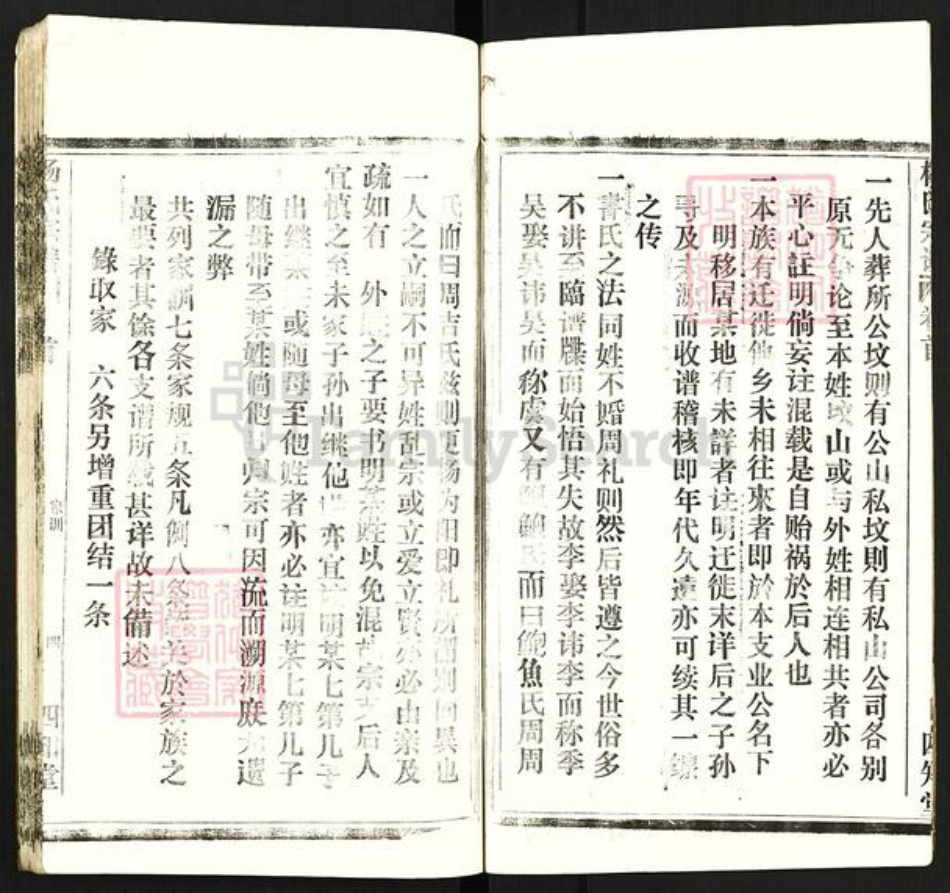 一先人葬所公坟则有公山私坟則有私山公司各别
原无争论至本姓坟山或与外姓相连相共者亦必
平心註明倘妄注混载是自贻祸於后人也
一本族有迁徙他乡未相往來者即於本支业公名下
明移居某地有未詳者註明迁徙末详后之子孙
寻及大源而收谱稽核即年代久遠亦可续其一線
之传
一書氏之法同姓不婚周礼则然后皆遵之今世俗多
不讲至臨谱牒而始悟其失故李娶李讳李而称季
吴娶吴讳吴而称虞又有 鲍氏而曰鲍魚氏周周
氏而曰周吉氏兹则更杨为阳即礼所谓别同異也
一人之立嗣不可异姓乱宗或立爱立賢亦必由亲及
疏如有 外 之子要书明某姓以免混乱宗支后人
宜慎之至未家子孙出继他 亦宜 明某七第几子
出继某 或随母至他姓者亦必注明某七第几子
随母带至某姓倘他日归宗可因流而溯源庶无遗
漏之弊
共列家訓七条家规五条凡例八条 关於家族之
最要者其餘各支谱所载甚详故未備述
錄取家 六条另增重团结一条
家訓
四
四知堂
卷首
四知堂
FamilySearch